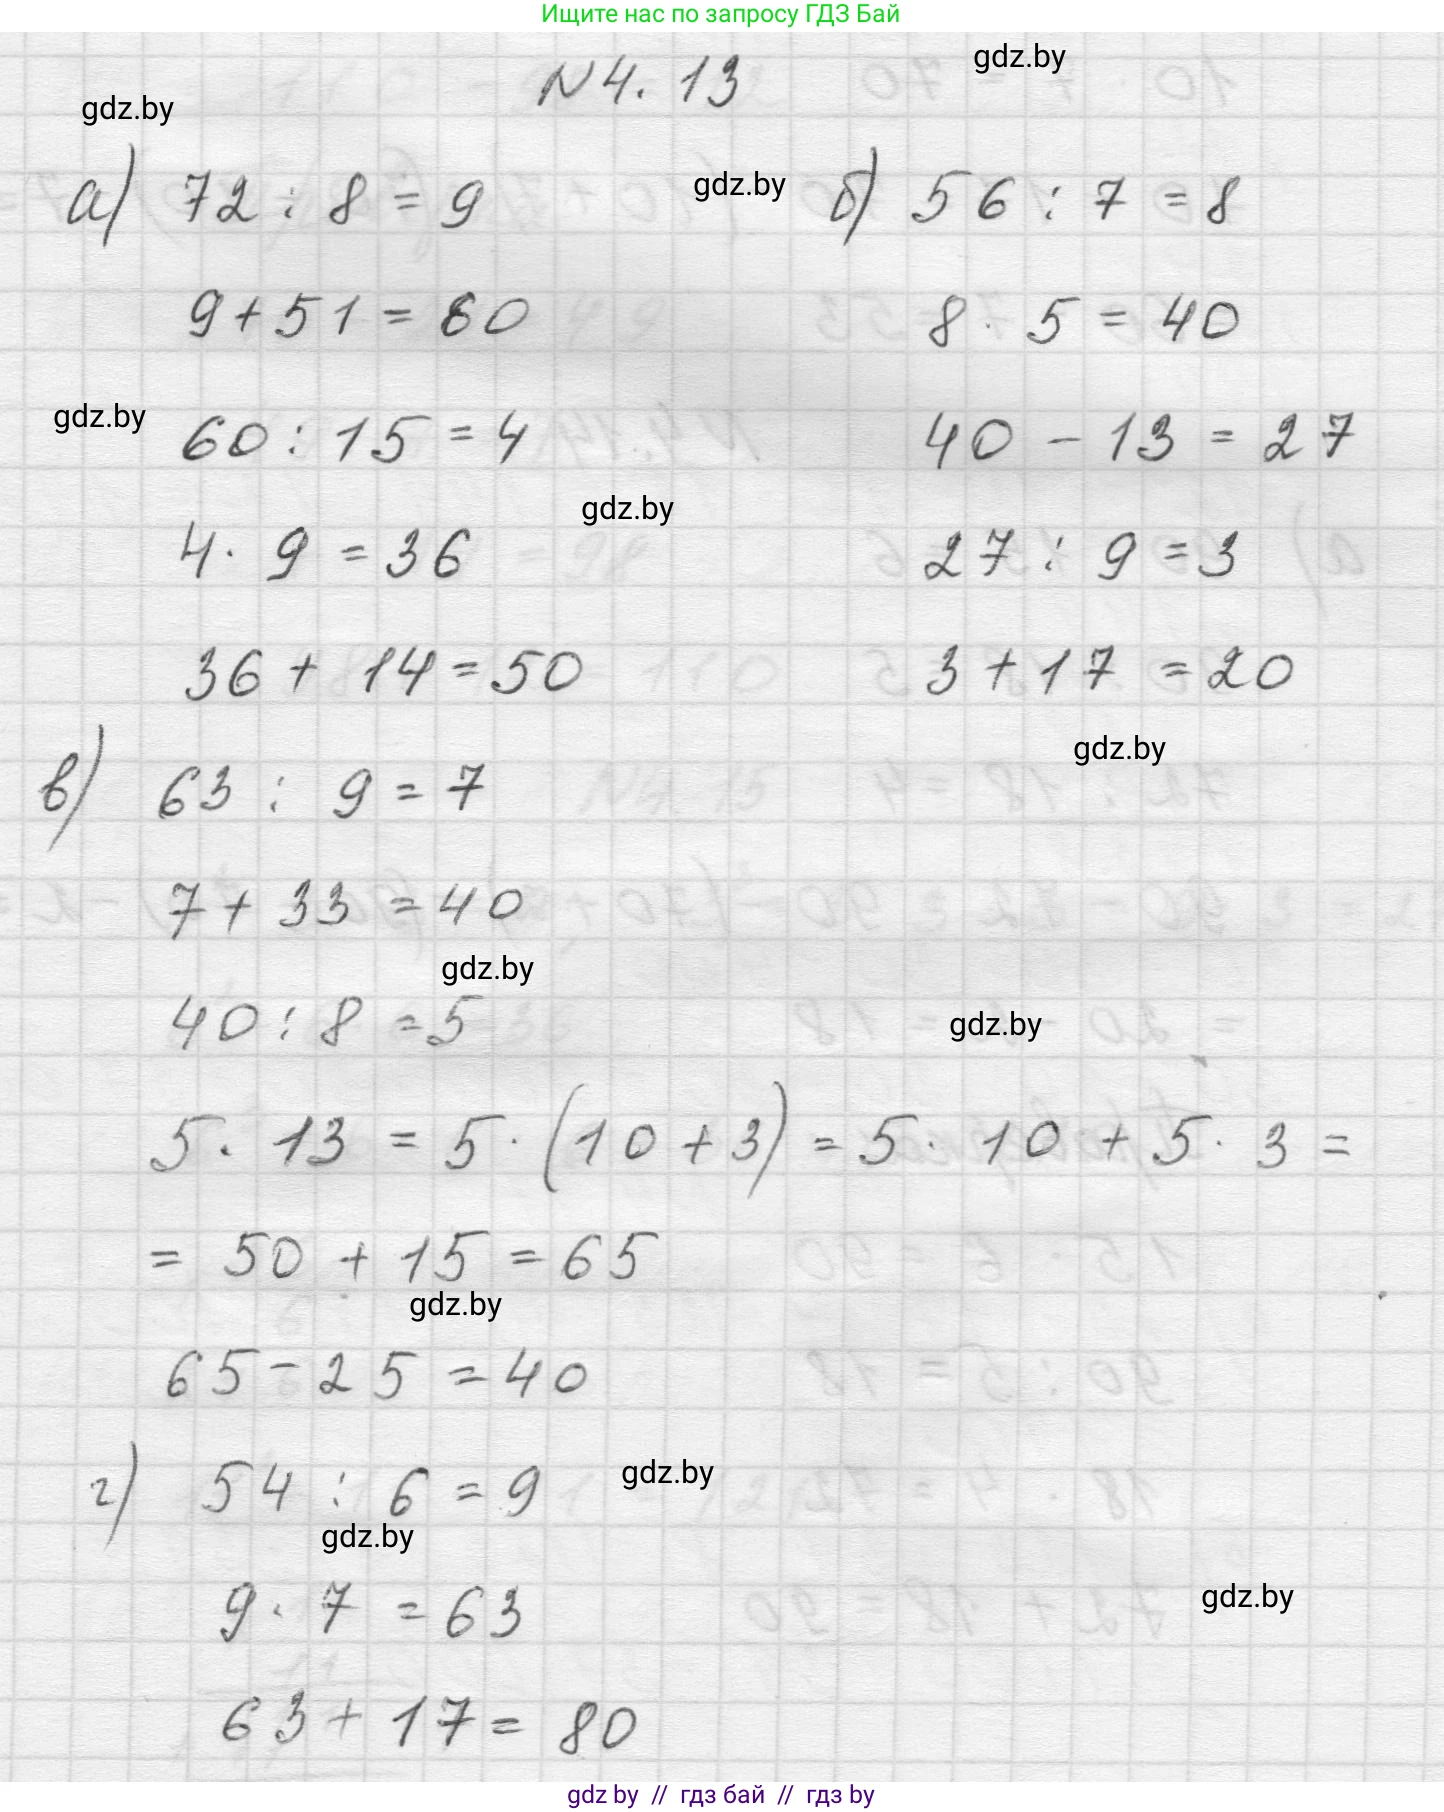 Ищите нас по запросу ГДЗ Бай
N4.13
gdz.by
gdz.by
а) 72 : 8 = 9
gdz.by
б) 56 : 7 = 8
9 + 51 = 60
8 · 5 = 40
gdz.by
60 : 15 = 4
40 - 13 = 27
gdz.by
4 · 9 = 36
27 : 9 = 3
36 + 14 = 50
3 + 17 = 20
gdz.by
в) 63 : 9 = 7
7 + 33 = 40
gdz.by
40 : 8 = 5
gdz.by
5 · 13 = 5 · (10 + 3) = 5 · 10 + 5 · 3 =
= 50 + 15 = 65
gdz.by
65 - 25 = 40
г) 54 : 6 = 9
gdz.by
gdz.by
9 · 7 = 63
gdz.by
63 + 17 = 80
gdz by // гдз бай // гдз by